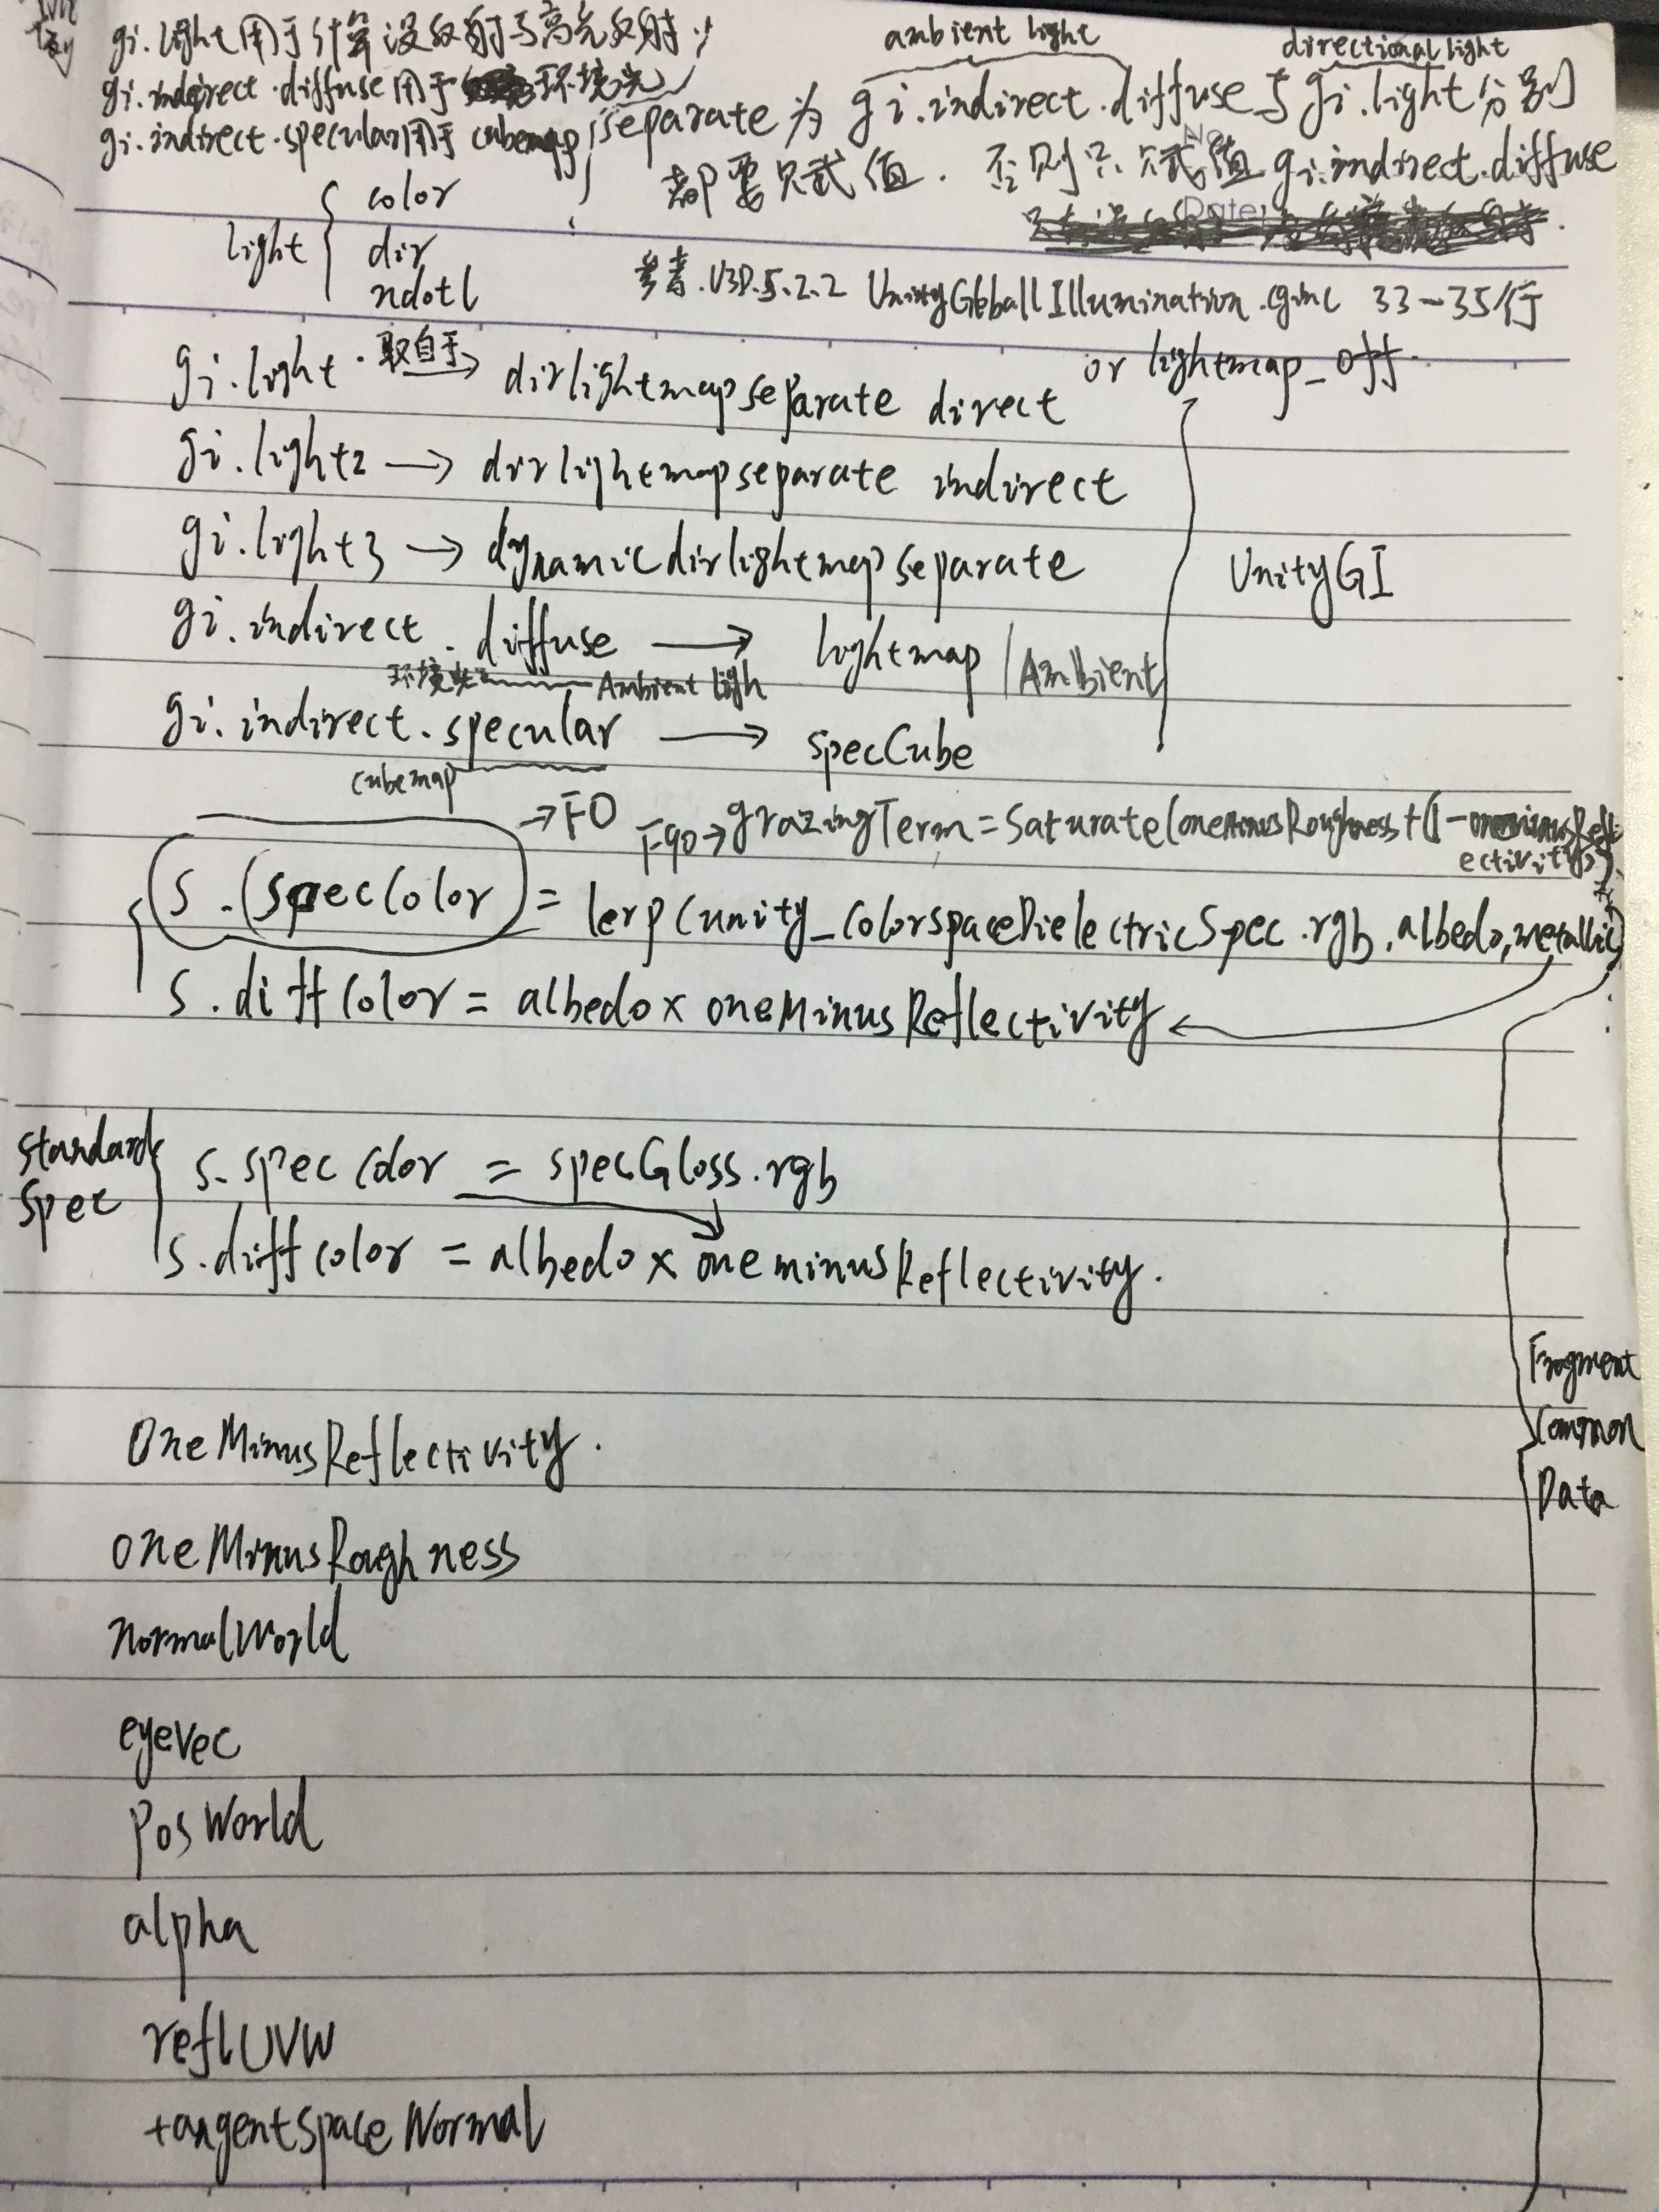 gi.light用于计算漫反射与高光反射
gi.indirect.diffuse用于环境光
gi.indirect.specular用于cubemap
ambient light
directional light
separate为 gi.indirect.diffuse与gi.light分别
都要赋值. 否则只赋值gi.indirect.diffuse
No.
Date
light { color
dir
ndotl
参考.U3D.5.2.2 UnityGloballIllumination.cginc 33-35行
gi.light 取自于→ dirlightmapseparate direct or lightmap_off.
gi.light2 → dirlightmapseparate indirect
gi.light3 → dynamicdirlightmapseparate
UnityGI
gi.indirect.diffuse → lightmap /Ambient
环境光 Ambient ligh
gi.indirect.specular → specCube
cubemap
→F0 F90→grazingTerm=saturate(oneminusRoughness+(1-oneminusRefl
ectivity))
s.(speccolor = lerp(unity_colorspaceDielectricSpec.rgb,albedo,metallic)
s.diffcolor = albedo x oneMinusReflectivity
standard
spec
s.speccolor = specGloss.rgb
s.diffcolor = albedo x oneminusReflectivity.
Fragment
Common
Data
OneMinusReflectivity.
oneMinusRoughness
normalWorld
eyeVec
posWorld
alpha
reflUVW
tangentspaceNormal